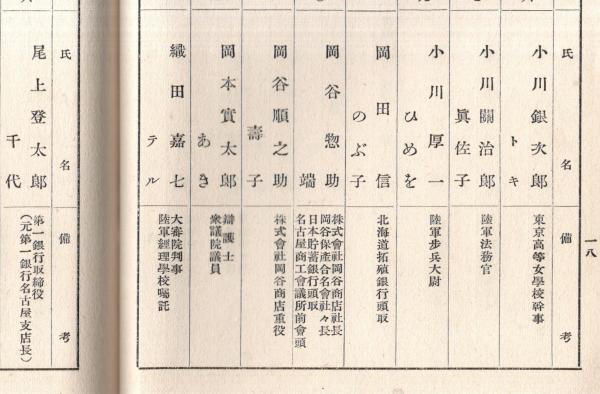 一八
氏名
備考
小川銀次郎
トキ
東京高等女學校幹事
小川關治郎
眞佐子
陸軍法務官
小川厚一
ひめを
陸軍歩兵大尉
岡田信
のぶ子
北海道拓殖銀行頭取
岡谷惣助
端
株式會社岡谷商店社長
岡谷保產合名會社々長
日本貯蓄銀行頭取
名古屋商工會議所前會頭
岡谷順之助
壽子
株式會社岡谷商店重役
岡本實太郎
あき
辯護士
衆議院議員
織田嘉七
テル
大審院判事
陸軍經理學校囑託
氏名
備考
尾上登太郎
千代
第一銀行取締役
(元第一銀行名古屋支店長)